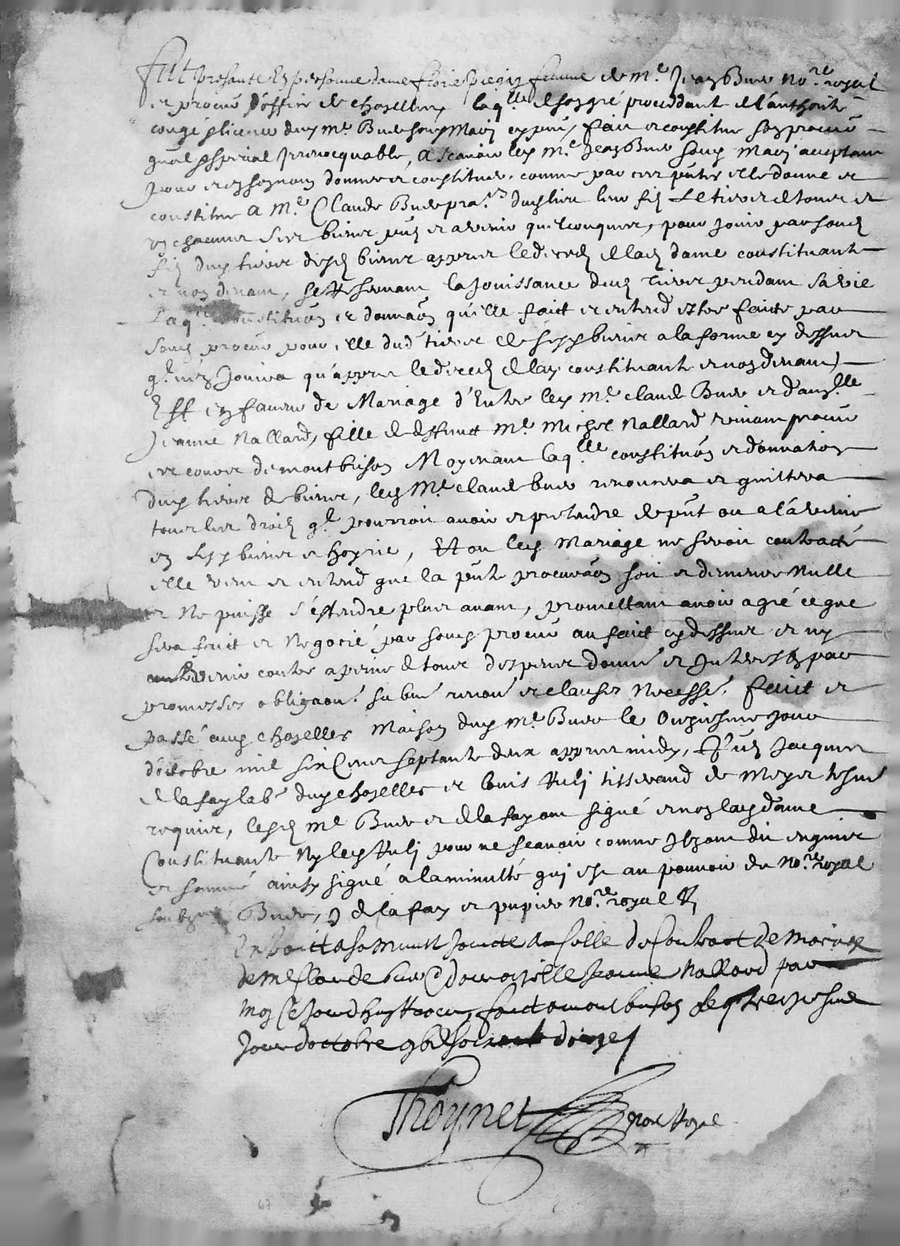 fut presante En personne dame flori femme de me Jean Buer nore royal
et procur d'office de chazelles, laqlle de son gré proceddant de l'authorité
congé & licence dud me Buer son Mary cy pnt, fait et constitue son procur
gnal & special Irrevocquable, A scavoir led me Jean Buer son Mary acceptant
pour et en son nom donner et constituer, comme par ces pntes elle donne et
constitue A Me Claude Buer dud lieu leur filz Le tier de tous et
un chacuns ses biens pns et advenir quelconques, pour jouir par son
filz dud tier desd biens appres le deced de lad dame constituante
et non devant, se Reservant la Jouissance dud tier pendant sa vie
Laqlle constituõn et donnaõn qu'elle fait et entend estre faite par
sond procur pour elle dud tier de sesd biens a la forme cy dessus
ql n'en Jouira qu'appres le deced de lad constituante et non devant
Est en faveur de Mariage d'Entre led me claude Buer et damlle
Jeanne Nallard, fille de deffunt me Michel Nallard vivant procur
es cours de montbrison Moyenant laqlle constituõn et donnation
dud tier de biens, led Me claude buer renoncera et quittera
tous les droits ql pourroit avoir et pretendre de pnt ou a l'advenir
en sesd biens et hoyrie, Et ou led Mariage ne seroit contracté
elle veut et entend que la pnte procuraõn soit et demeure Nulle
et Ne puisse s'estendre plus avant, promettant avoir agré ce que
sera fait et Negocié par sond procur au fait cy dessus et ny
venir contre a peine de tous despens domma et Interestz par
promesses obligaõn submi renon et clauses Necessre. fait et
passé aud chazelles Maison dud Me Buer le Onziesme jour
d'octobre mil six Cens septante deux appres midy, Pns Jacques
de la fay labr dud chazelles et Louis tisserand de Meys tesmoins
requis, lesd me Buer et de la fay ont signé et non lad dame
Constituante Ny led pour ne scavoir comme Ilz ont dit enquis
et sommé ainsy signé a la minutte qui est au pouvoir du Nore royal
soubzne Buer, J de la fay et pupier Nore royal
Extraict a sa minutte Joincte a celle du Contract de mariage
de me Claude buer & damoiselle Jeanne Nallard par
moy Ce Jourdhuy Receu, fait a montbrison le treziesme
Jour doctobre gbjc soixante douze
Thoynet nore Royal